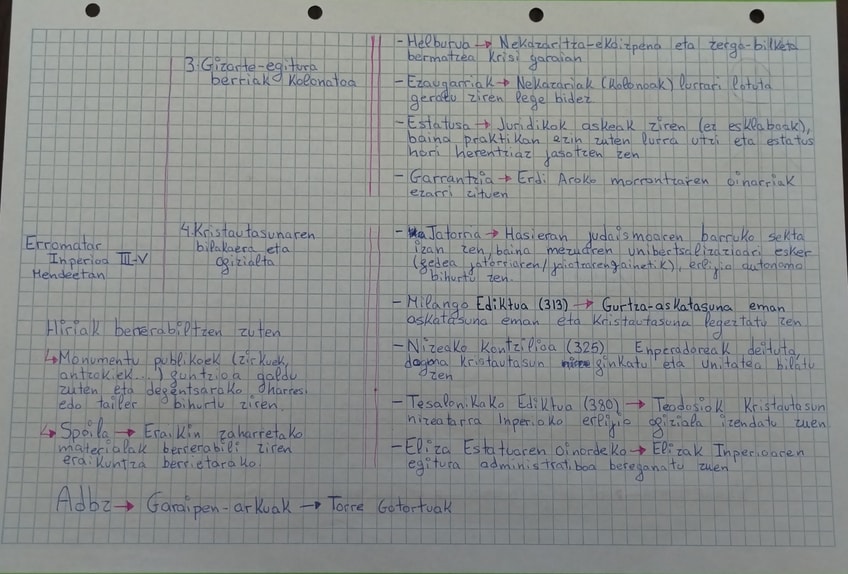 3. Gizarte-egitura
berriak Kolonatoa
- Helburua → Nekazaritza-ekoizpena eta zerga-bilketa
bermatzea krisi garaian
- Ezaugarriak → Nekazariak (Kolonoak) lurrari lotuta
geratu ziren lege bidez
- Estatusa → Juridikok askeak ziren (ez esklaboak),
baina praktikan ezin zuten lurra utzi eta estatus
hori herentziaz jasotzen zen
- Garrantzia → Erdi Aroko morrontzaren oinarriak
ezarri zituen
Erromatar
Inperioa III-V
Mendeetan
4. Kristautasunaren
bilakaera eta
ofizialta
- Jatorria → Hasieran judaismoaren barruko sekta
izan zen, baina mezuaren unibertsalizazioari esker
(fedea jatorriaren/jaiotzaren gainetik), erlijio autonomo
bihurtu zen.
- Milango Ediktua (313) → Gurtza-askatasuna eman
askatasuna eman eta Kristautasuna legeztatu zen
- Nizeako Kontzilioa (325) Enperadoreak deituta,
dogma Kristautasun finkatu eta unitatea bilatu
zen
- Tesalonikako Ediktua (380) → Teodosiok Kristautasun
nizeatarra Inperioko erlijio ofiziala izendatu zuen
- Eliza Estatuaren oinordeko → Elizak Inperioaren
egitura administratiboa bereganatu zuen
Hiriak berrerabiltzen zuten
↳ Monumentu publikoek (zirkuek,
antzokiek...) funtzioa galdu
zuten eta defentsarako gharresi
edo tailer bihurtu ziren.
↳ Spoila → Eraikin zaharretako
materialak berrerabili ziren
eraikuntza berrietarako
Adbz → Garaipen-arkuak → Torre Gotortuak